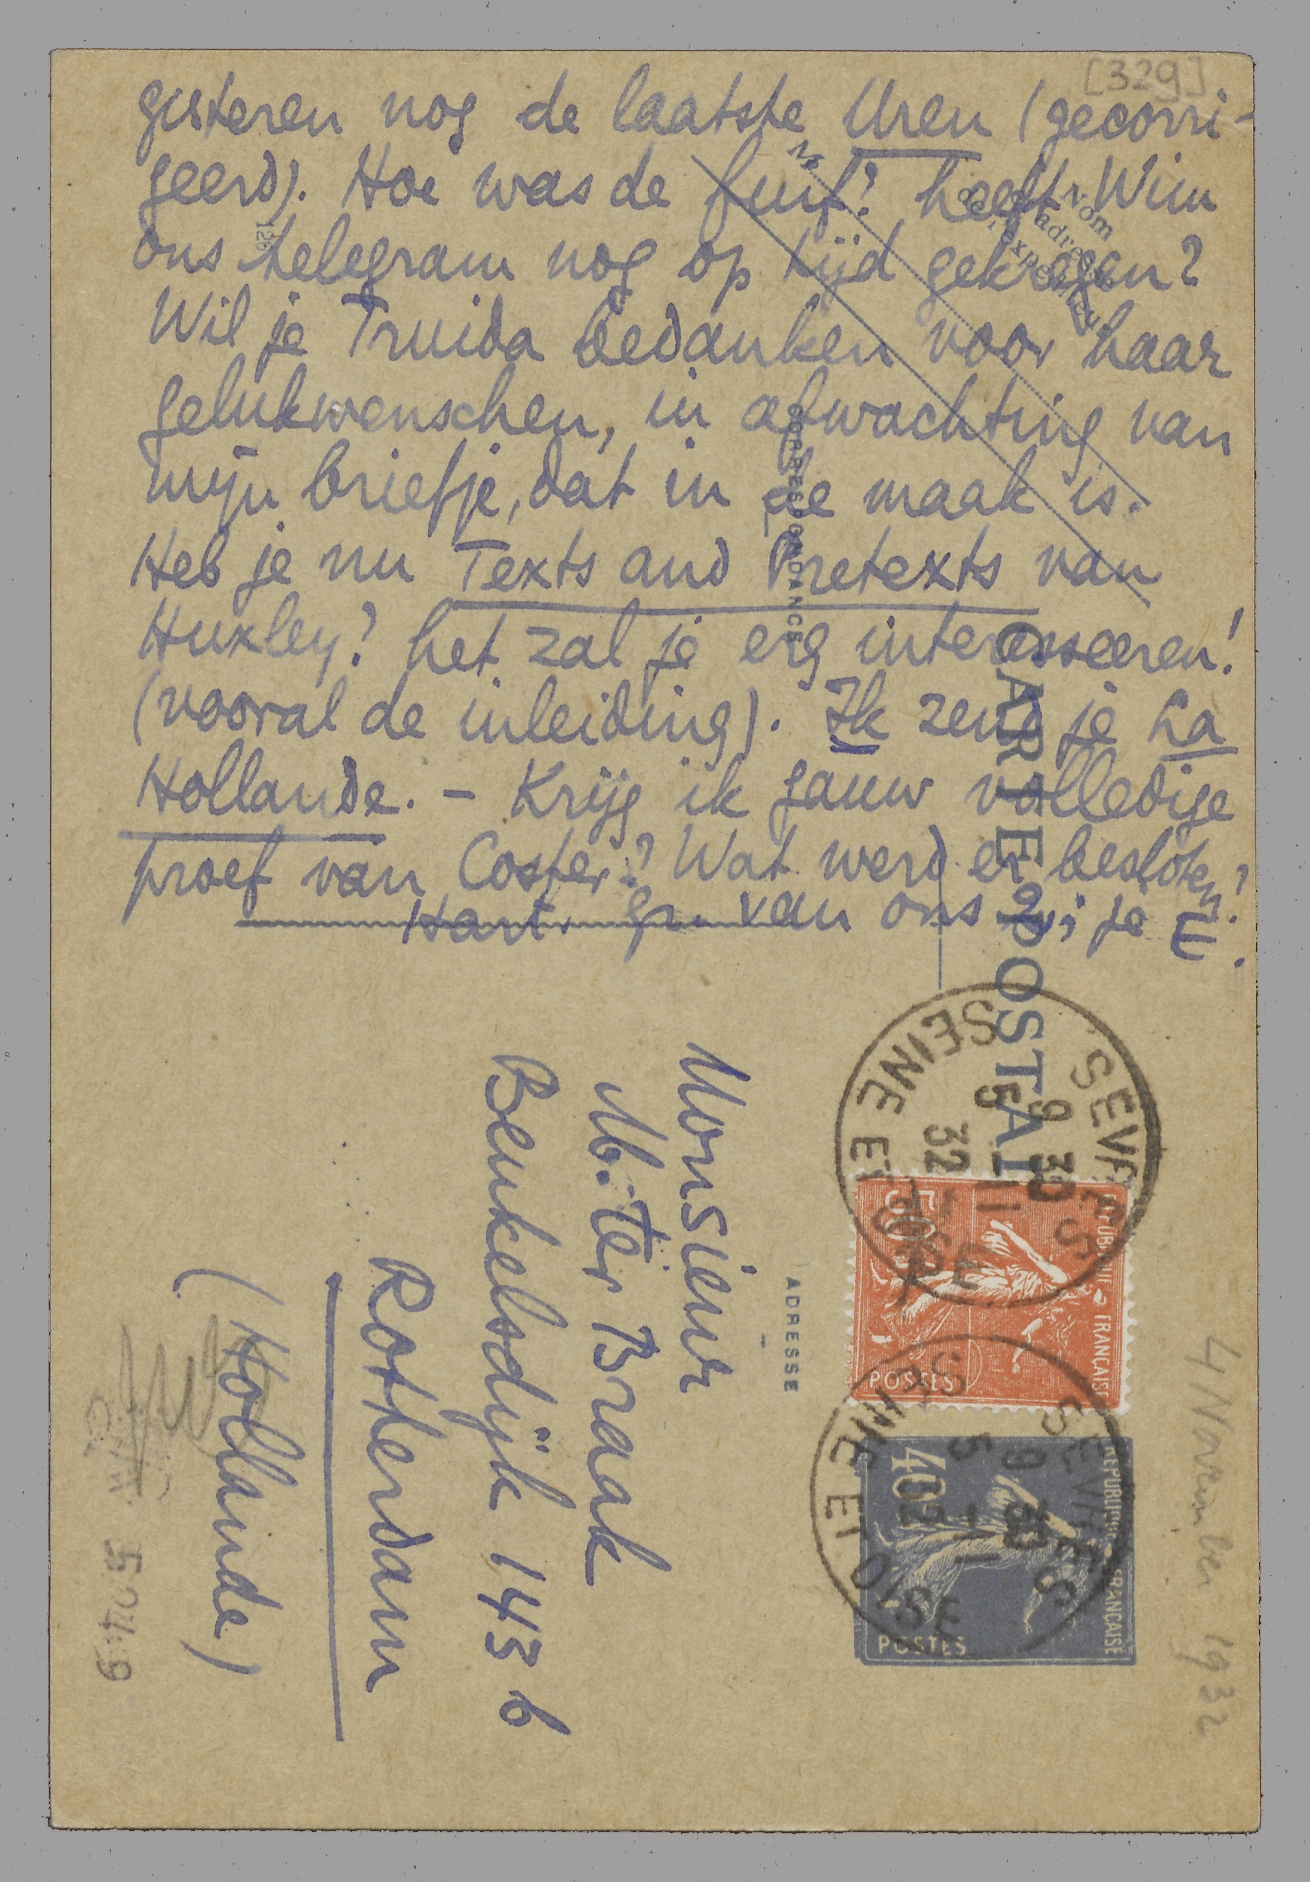 [329]
gisteren nog de laatste Uren (gecorri-
geerd). Hoe was de fuif? heeft Wim
ons telegram nog op tijd gekregen?
Wil je Truida bedanken voor haar
gelukwenschen, in afwachting van
mijn briefje, dat in de maak is.
Heb je nu Texts and Pretexts van
Huxley? het zal je erg interesseeren!
(vooral de inleiding). Ik zend je La
Hollande. - Krijg ik gauw volledige
proef van Coster? Wat werd er besloten?
Hart. gr. van ons 2; je E.
Nom
CORRESPONDANCE
CARTE POSTALE
ADRESSE
Monsieur
M. ter Braak
Beukelsdijk 143 b
Rotterdam
(Hollande)
SEVRES
SEINE ET OISE
9 30
5 - 11
32
RÉPUBLIQUE FRANÇAISE
50c
POSTES
SEVRES
SEINE ET OISE
9 30
5 - 11
32
RÉPUBLIQUE FRANÇAISE
40c
POSTES
4 November 1932